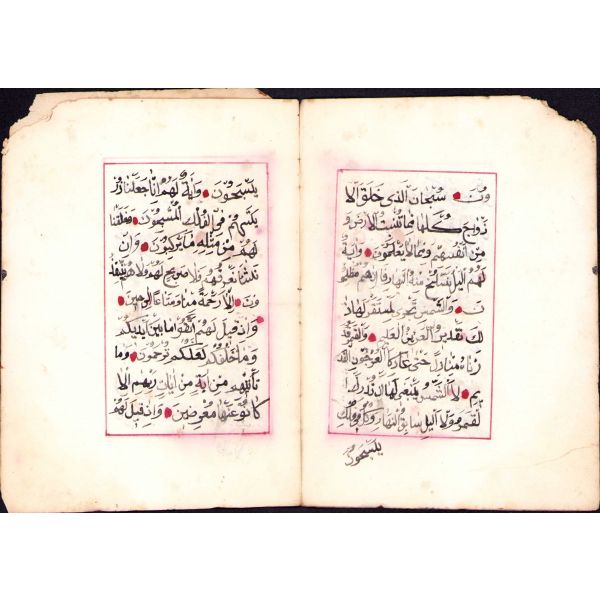 ون سبحان الذي خلق الا
زواج كلها مما تنبت الارض و
من انفسهم ومما لا يعلمون واية
لهم اليل نسلخ منه النهار فاذا هم مظلمو
ن والشمس تجري لمستقر لها ذ
لك تقدير العزيز العليم والقمر قد
رناه منازل حتى عاد كالعرجون القد
يم لا الشمس ينبغي لها ان تدرك ا
لقمر ولا اليل سابق النهار وكل في فلك
يسبحون
يسبحون واية لهم انا جعلنا ذر
يتهم في الفلك المشحون وخلقنا
لهم من مثله ما يركبون وان
نشا نغرقهم فلا صريخ لهم ولا هم ينقذ
ون الا رحمة منا ومتاعا الى حين
واذ قيل لهم اتقوا ما بين ايديكم
وما خلفكم لعلكم ترحمون وما
تاتيهم من اية من ايات ربهم الا
كانوا عنها معرضين واذ قيل لهم